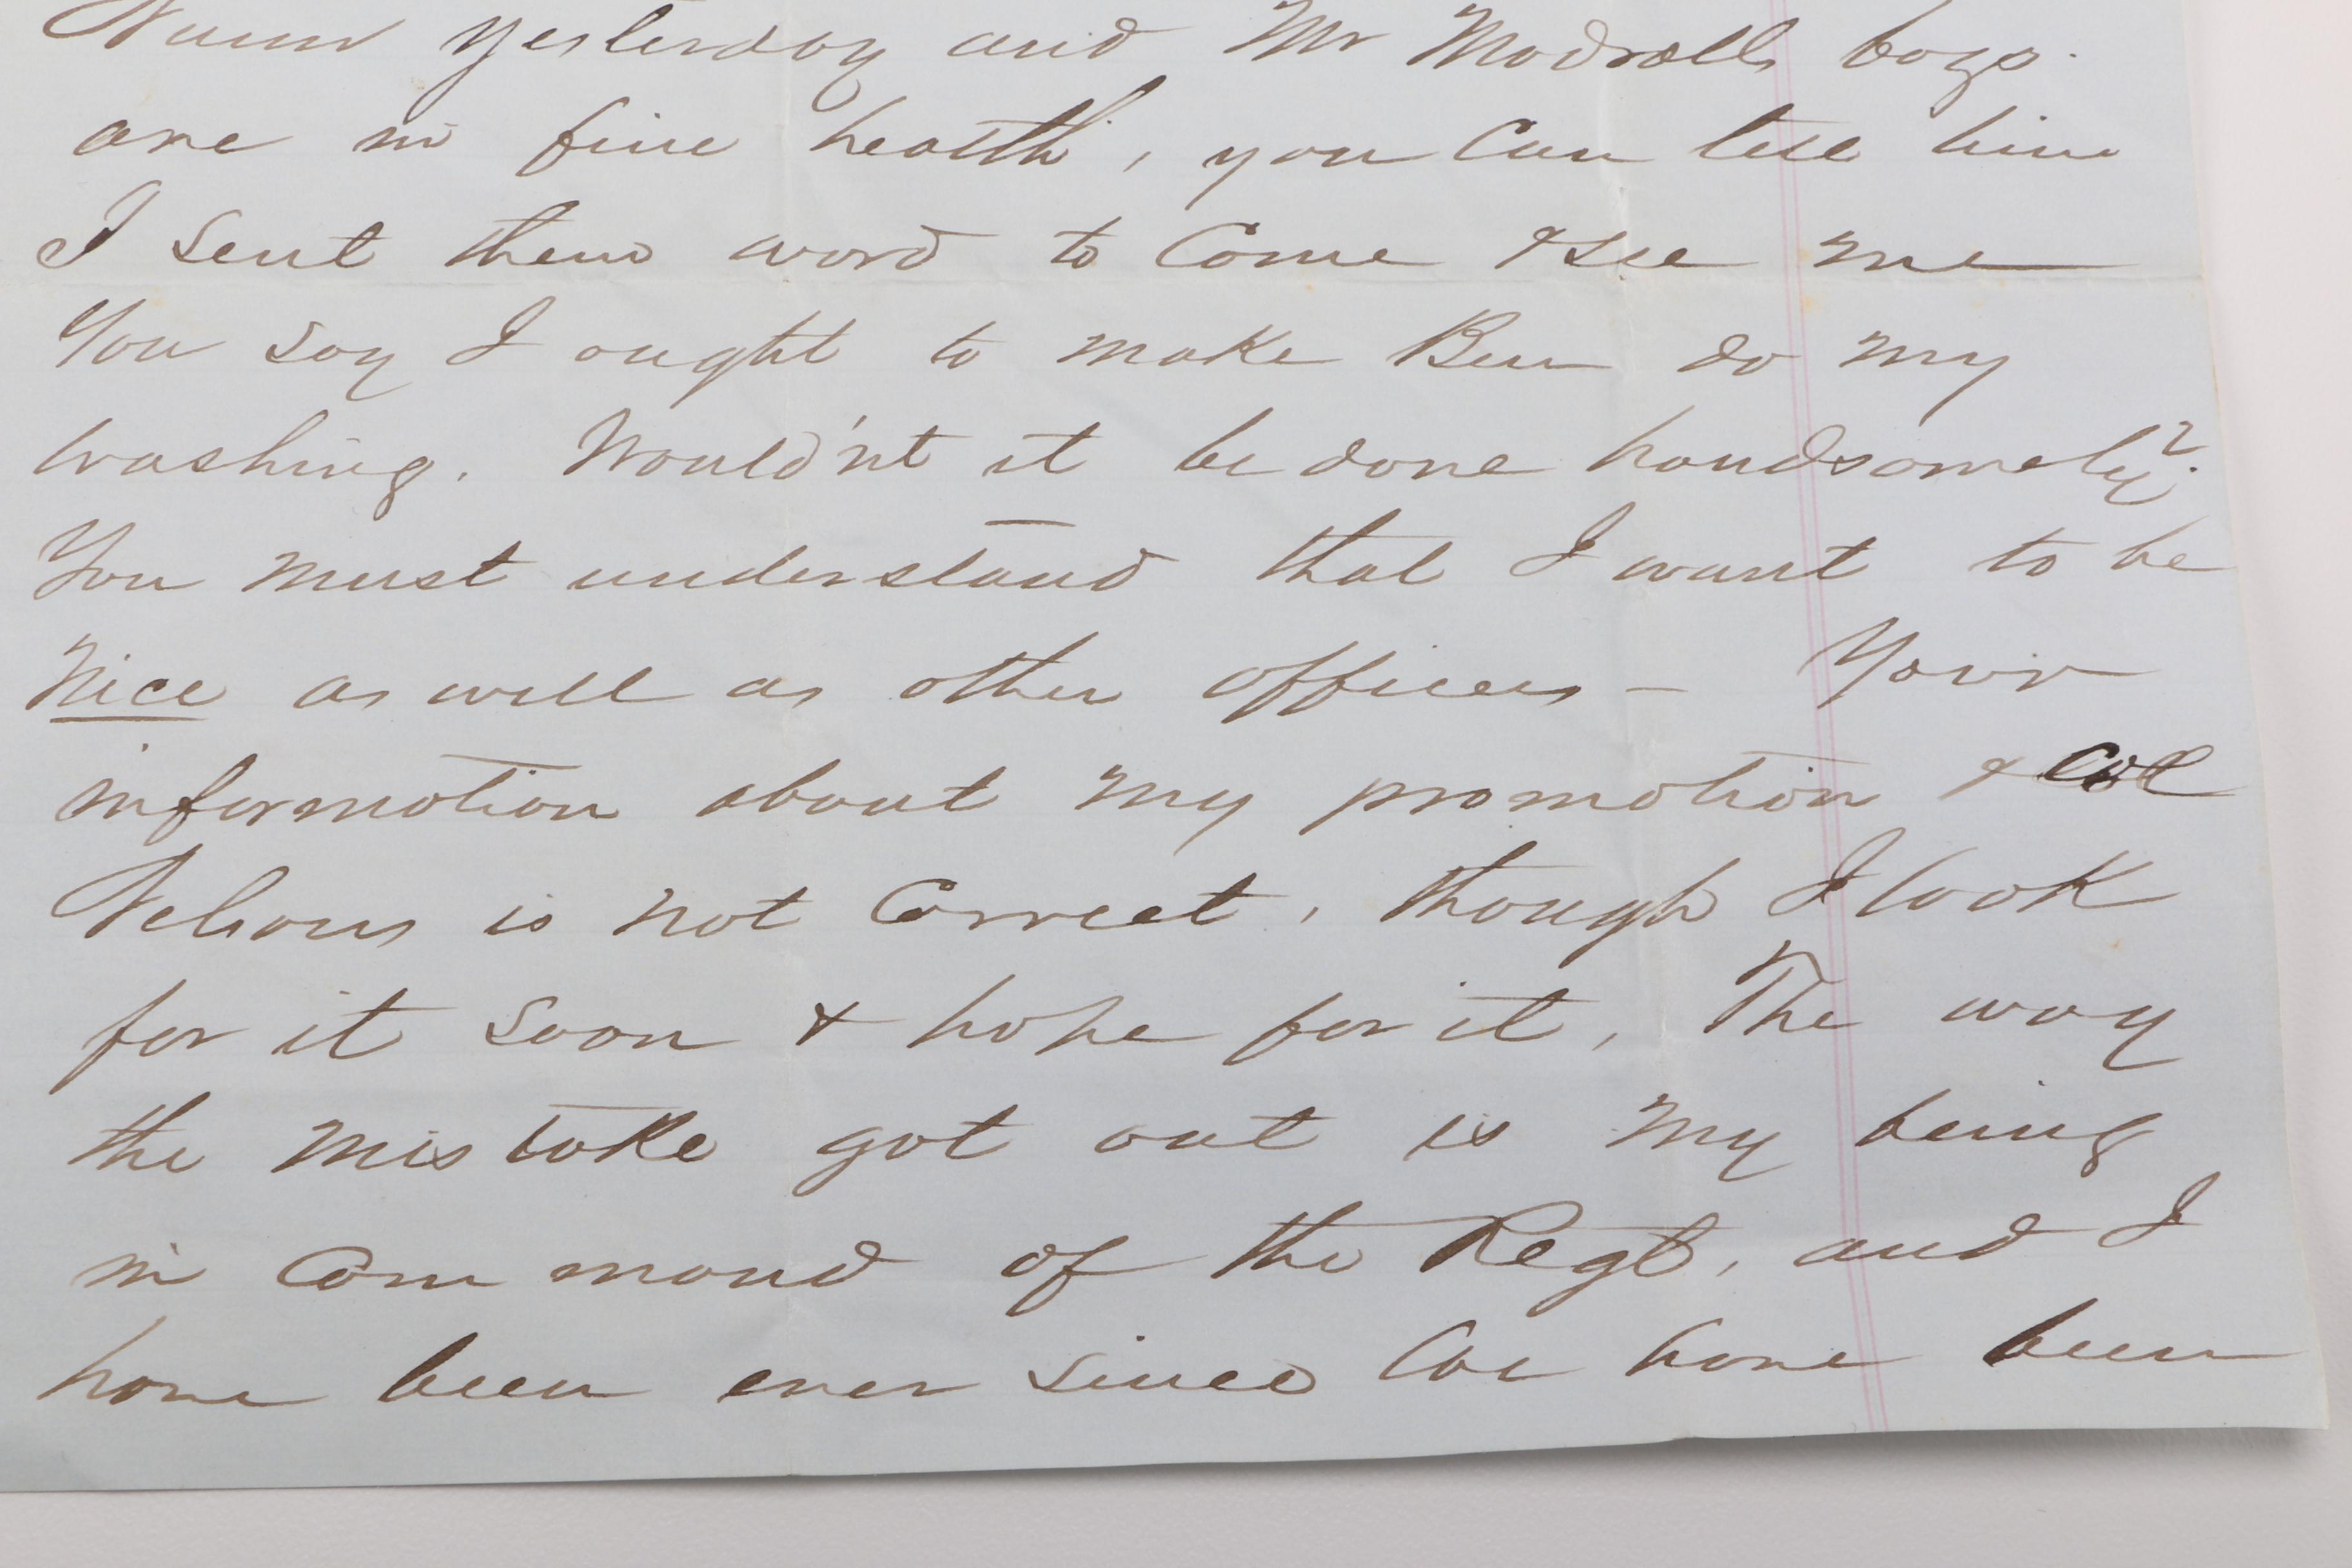 Nunn yesterday and Mr Modralls boys
are in fine health, you can tell him
I sent them word to Come & see me
You say I ought to make Ben do my
washing. Would'nt it be done handsomely?
You must understand that I want to be
Nice as well as other officers – Your
information about my promotion & Col
Nelsons is not Correct, though I look
for it soon & hope for it, The way
the mistake got out is my being
in Command of the Regt, and I
have been ever since Col have been